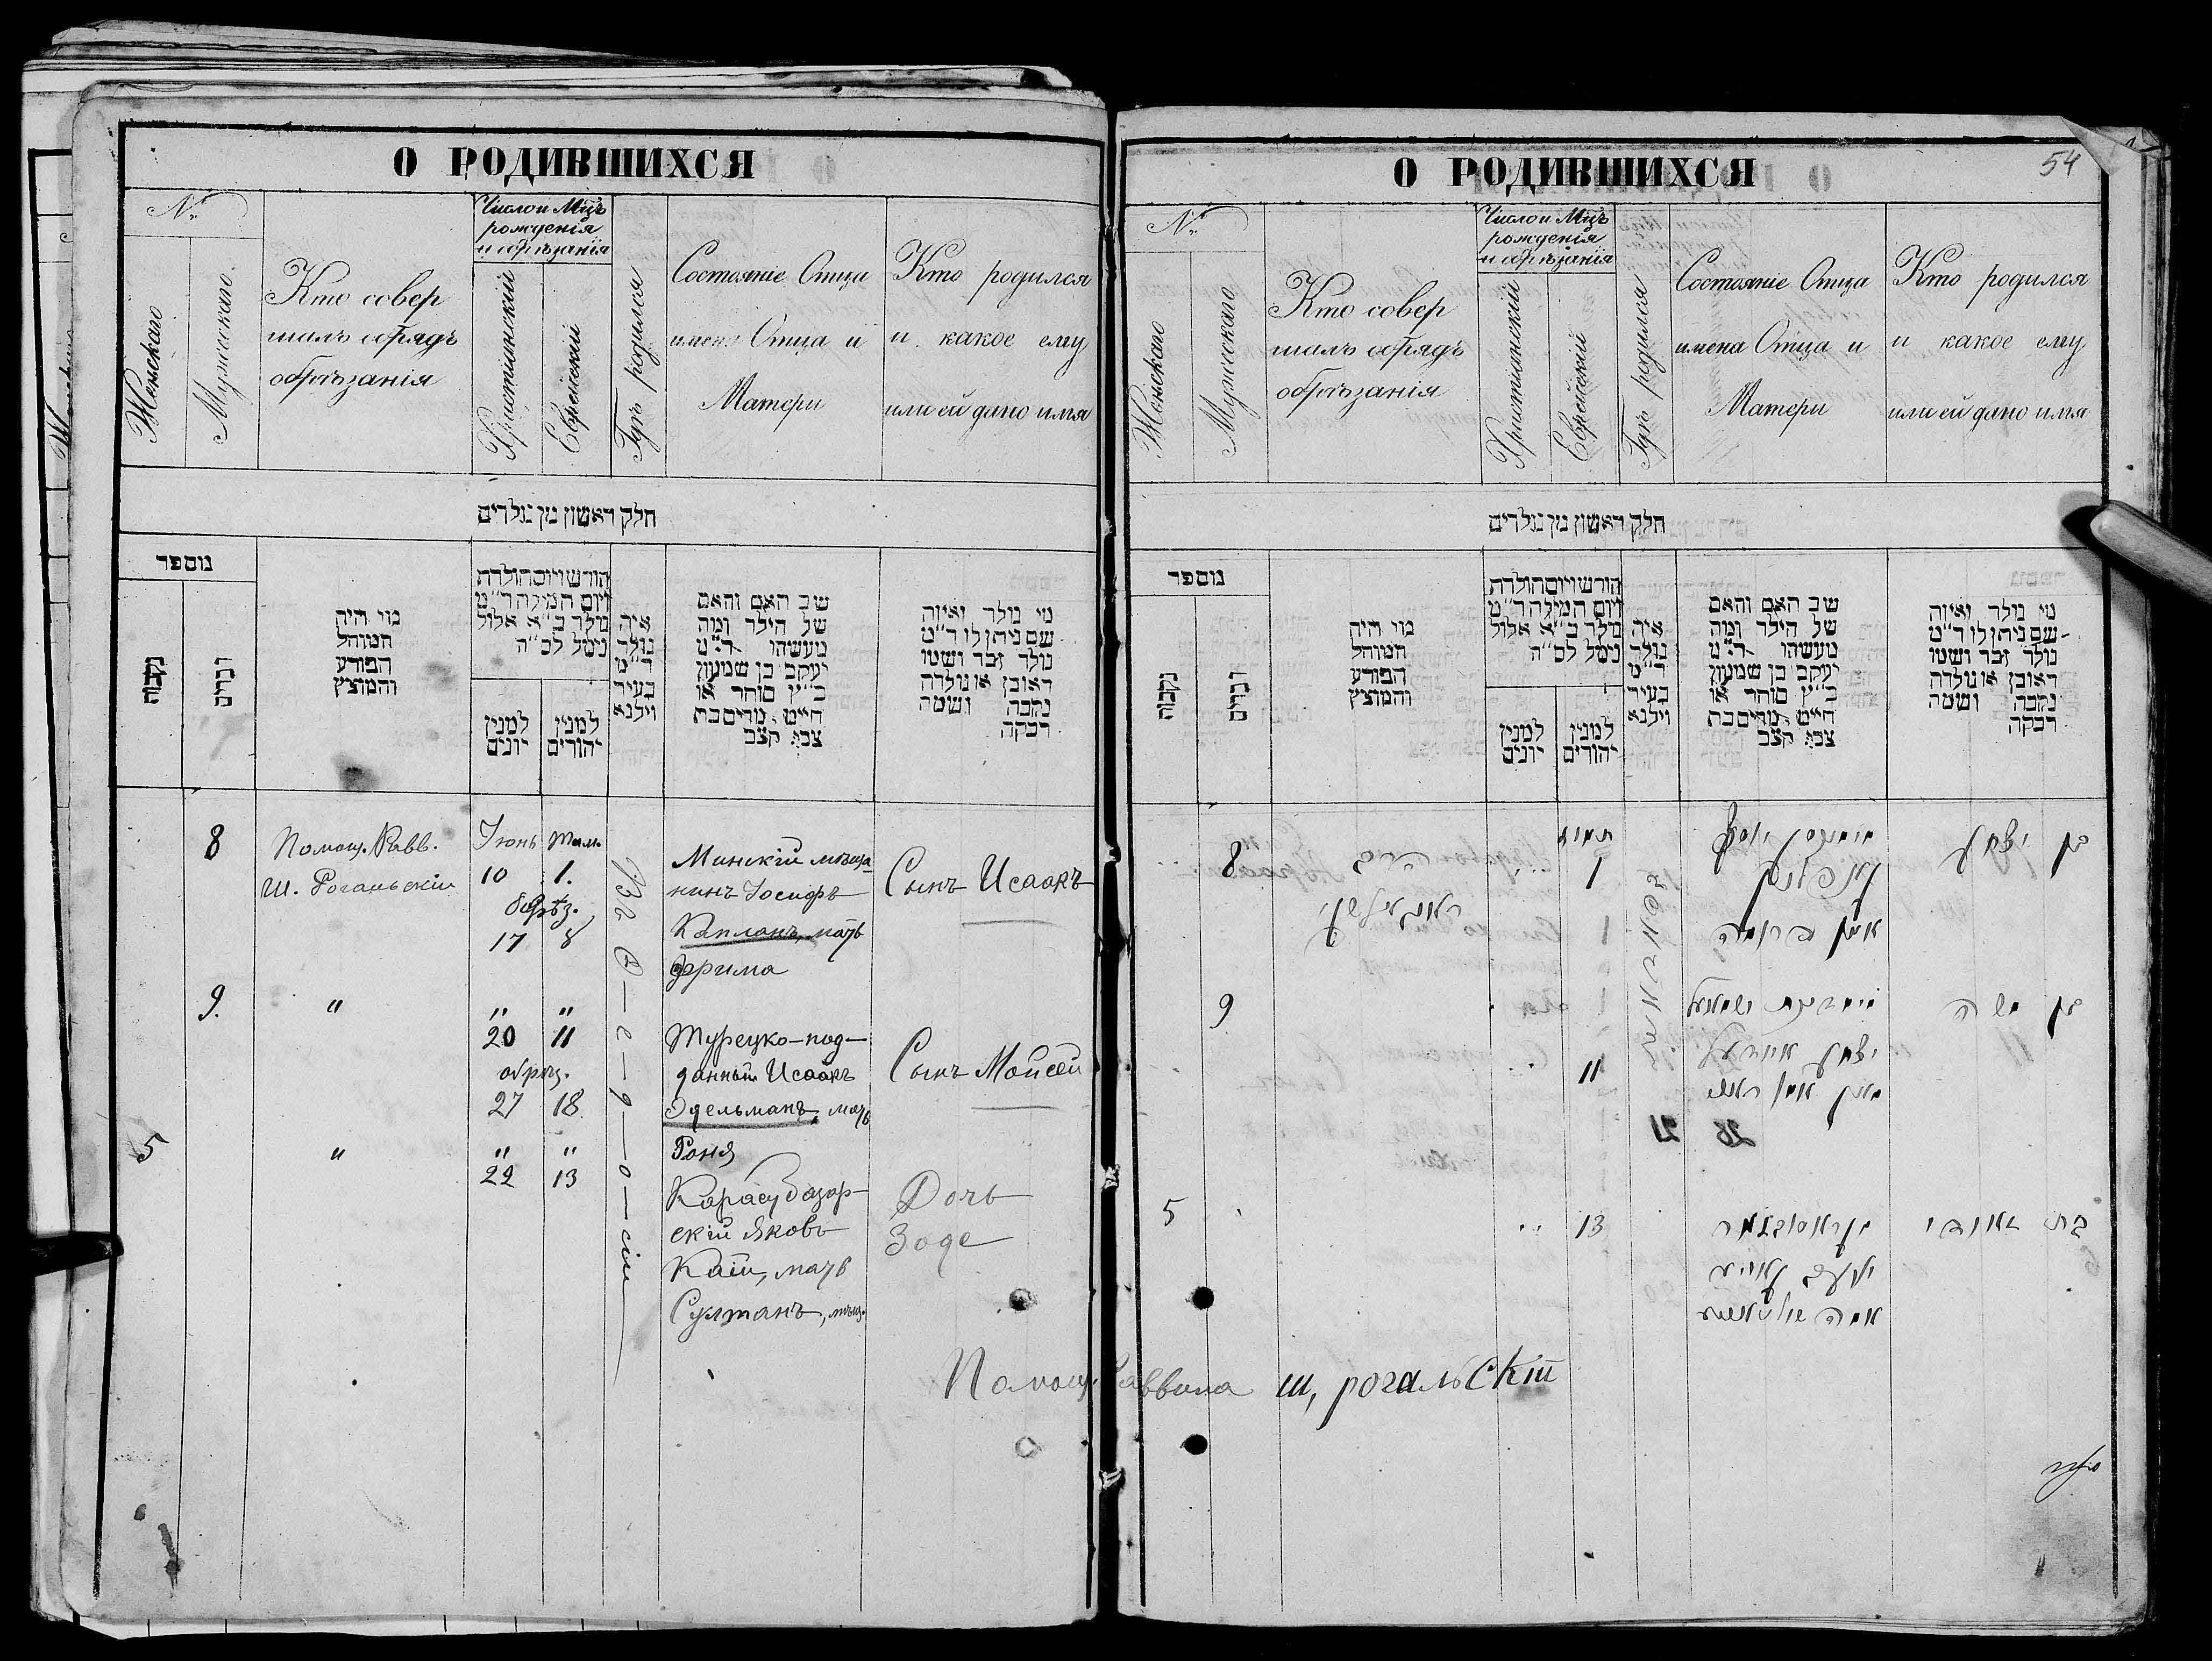 О РОДИВШИХСЯ
№
Женскаго
Мужескаго.
Кто совер
шалъ обрядъ
обрѣзанія
Число и Мцъ
рожденія
и обрѣзанія
Христіанскій
Еврейскій
Гдѣ родился
Состояніе Отца
имена Отца и
Матери
Кто родился
и какое ему
или ей дано имя
חלק ראשון מן נולדים
נוספר
נקבות
זכרים
מי היה
המוהל
הפורע
והמוצץ
חודש ויום הולדת
ויום המילה ד"מ
נולד כ"א אלול
נימל לס"ה
למנין
יונים
למנין
יהודים
איה
נולד
ד"מ
בעיר
וילנא
שב האם והאם
של הילד ומה
מעשהו ד"מ
יעקב בן שמעון
כ"ץ סוחר או
חייט מרים בת
צבי קצב
מי נולד ואיזה
שם ניתן לו ד"מ
נולד זכר ושמו
ראובן או נולדה
נקבה ושמה
רבקה
8
Помощ. Равв.
Ш. Рогальскій
Іюнь Там.
10 1.
обрѣз.
17 8
Ѳ—е—о—д—о—сіи
Минскій мѣща
нинъ Іосифъ
Капланъ, мать
Фрима
Сынъ Исаакъ
9.
"
" "
20 11
обрѣз.
27 18
Турецко-под-
данный Исаакъ
Эдельманъ, мать
Роня
Сынъ Моисей
5
"
" "
22 13
Карасубазар-
скій Яковъ
Каій, мать
Султанъ, мѣщ.
Дочь
Зоде
О РОДИВШИХСЯ
54
№
Женскаго
Мужескаго.
Кто совер
шалъ обрядъ
обрѣзанія
Число и Мцъ
рожденія
и обрѣзанія
Христіанскій
Еврейскій
Гдѣ родился
Состояніе Отца
имена Отца и
Матери
Кто родился
и какое ему
или ей дано имя
חלק ראשון מן נולדים
נוספר
נקבות
זכרים
מי היה
המוהל
הפורע
והמוצץ
חודש ויום הולדת
ויום המילה ד"מ
נולד כ"א אלול
נימל לס"ה
למנין
יונים
למנין
יהודים
איה
נולד
ד"מ
בעיר
וילנא
שב האם והאם
של הילד ומה
מעשהו ד"מ
יעקב בן שמעון
כ"ץ סוחר או
חייט מרים בת
צבי קצב
מי נולד ואיזה
שם ניתן לו ד"מ
נולד זכר ושמו
ראובן או נולדה
נקבה ושמה
רבקה
8
הרב
ראגאלסקי
תמוז
1
ממינסק יוסף
קאפלאן
בן יצחק
9
11
יצחק
בן משה
5
13
מקראסובאזאר
יעקב
בת
Помощ. Раввина Ш, рогальскій